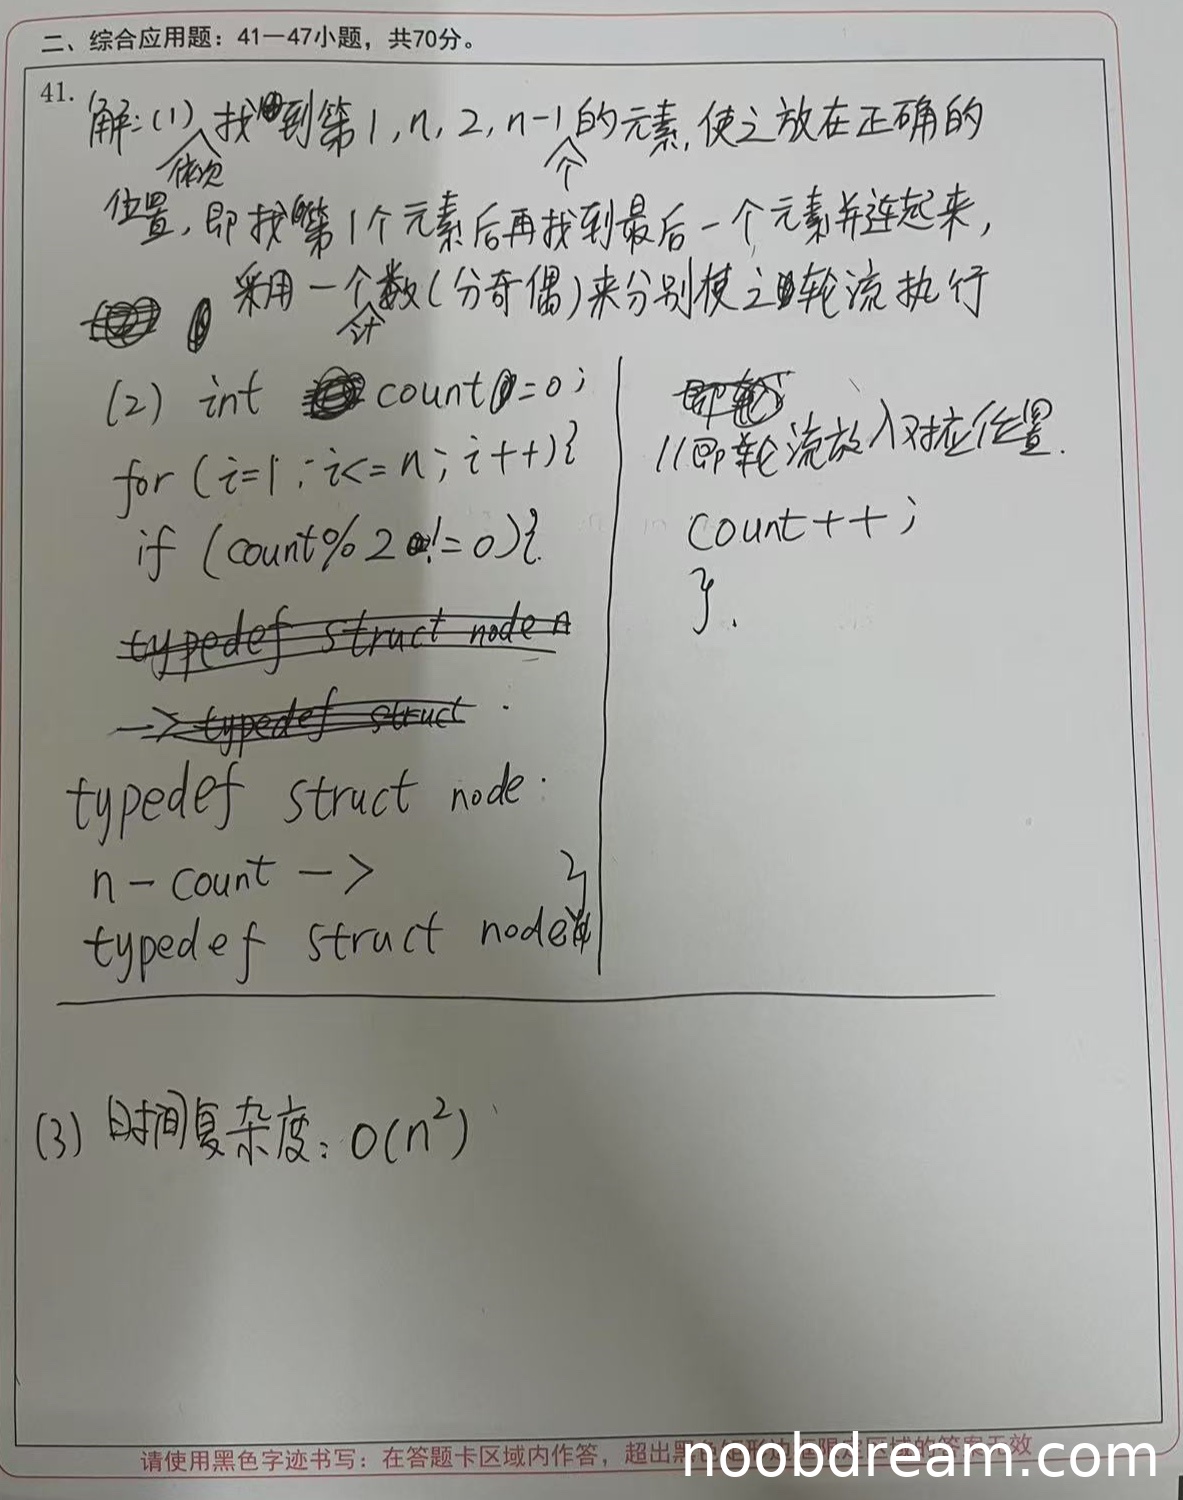 二、综合应用题：41—47小题，共70分。
41.
解:(1) 依次找到第1,n,2,n-1个的元素,使之放在正确的
位置,即找第1个元素后再找到最后一个元素并连起来,
采用一个计数(分奇偶)来分别使之轮流执行
(2) int count=0;
for (i=1;i<=n;i++){
if (count%2!=0){
typedef struct node n
->typedef struct
typedef struct node
n-count ->
}
typedef struct node
//即轮流放入对应位置.
count++;
}.
(3) 时间复杂度: O(n²)
请使用黑色字迹书写：在答题卡区域内作答，超出黑色矩形边框限定区域的答案无效
noobdream.com